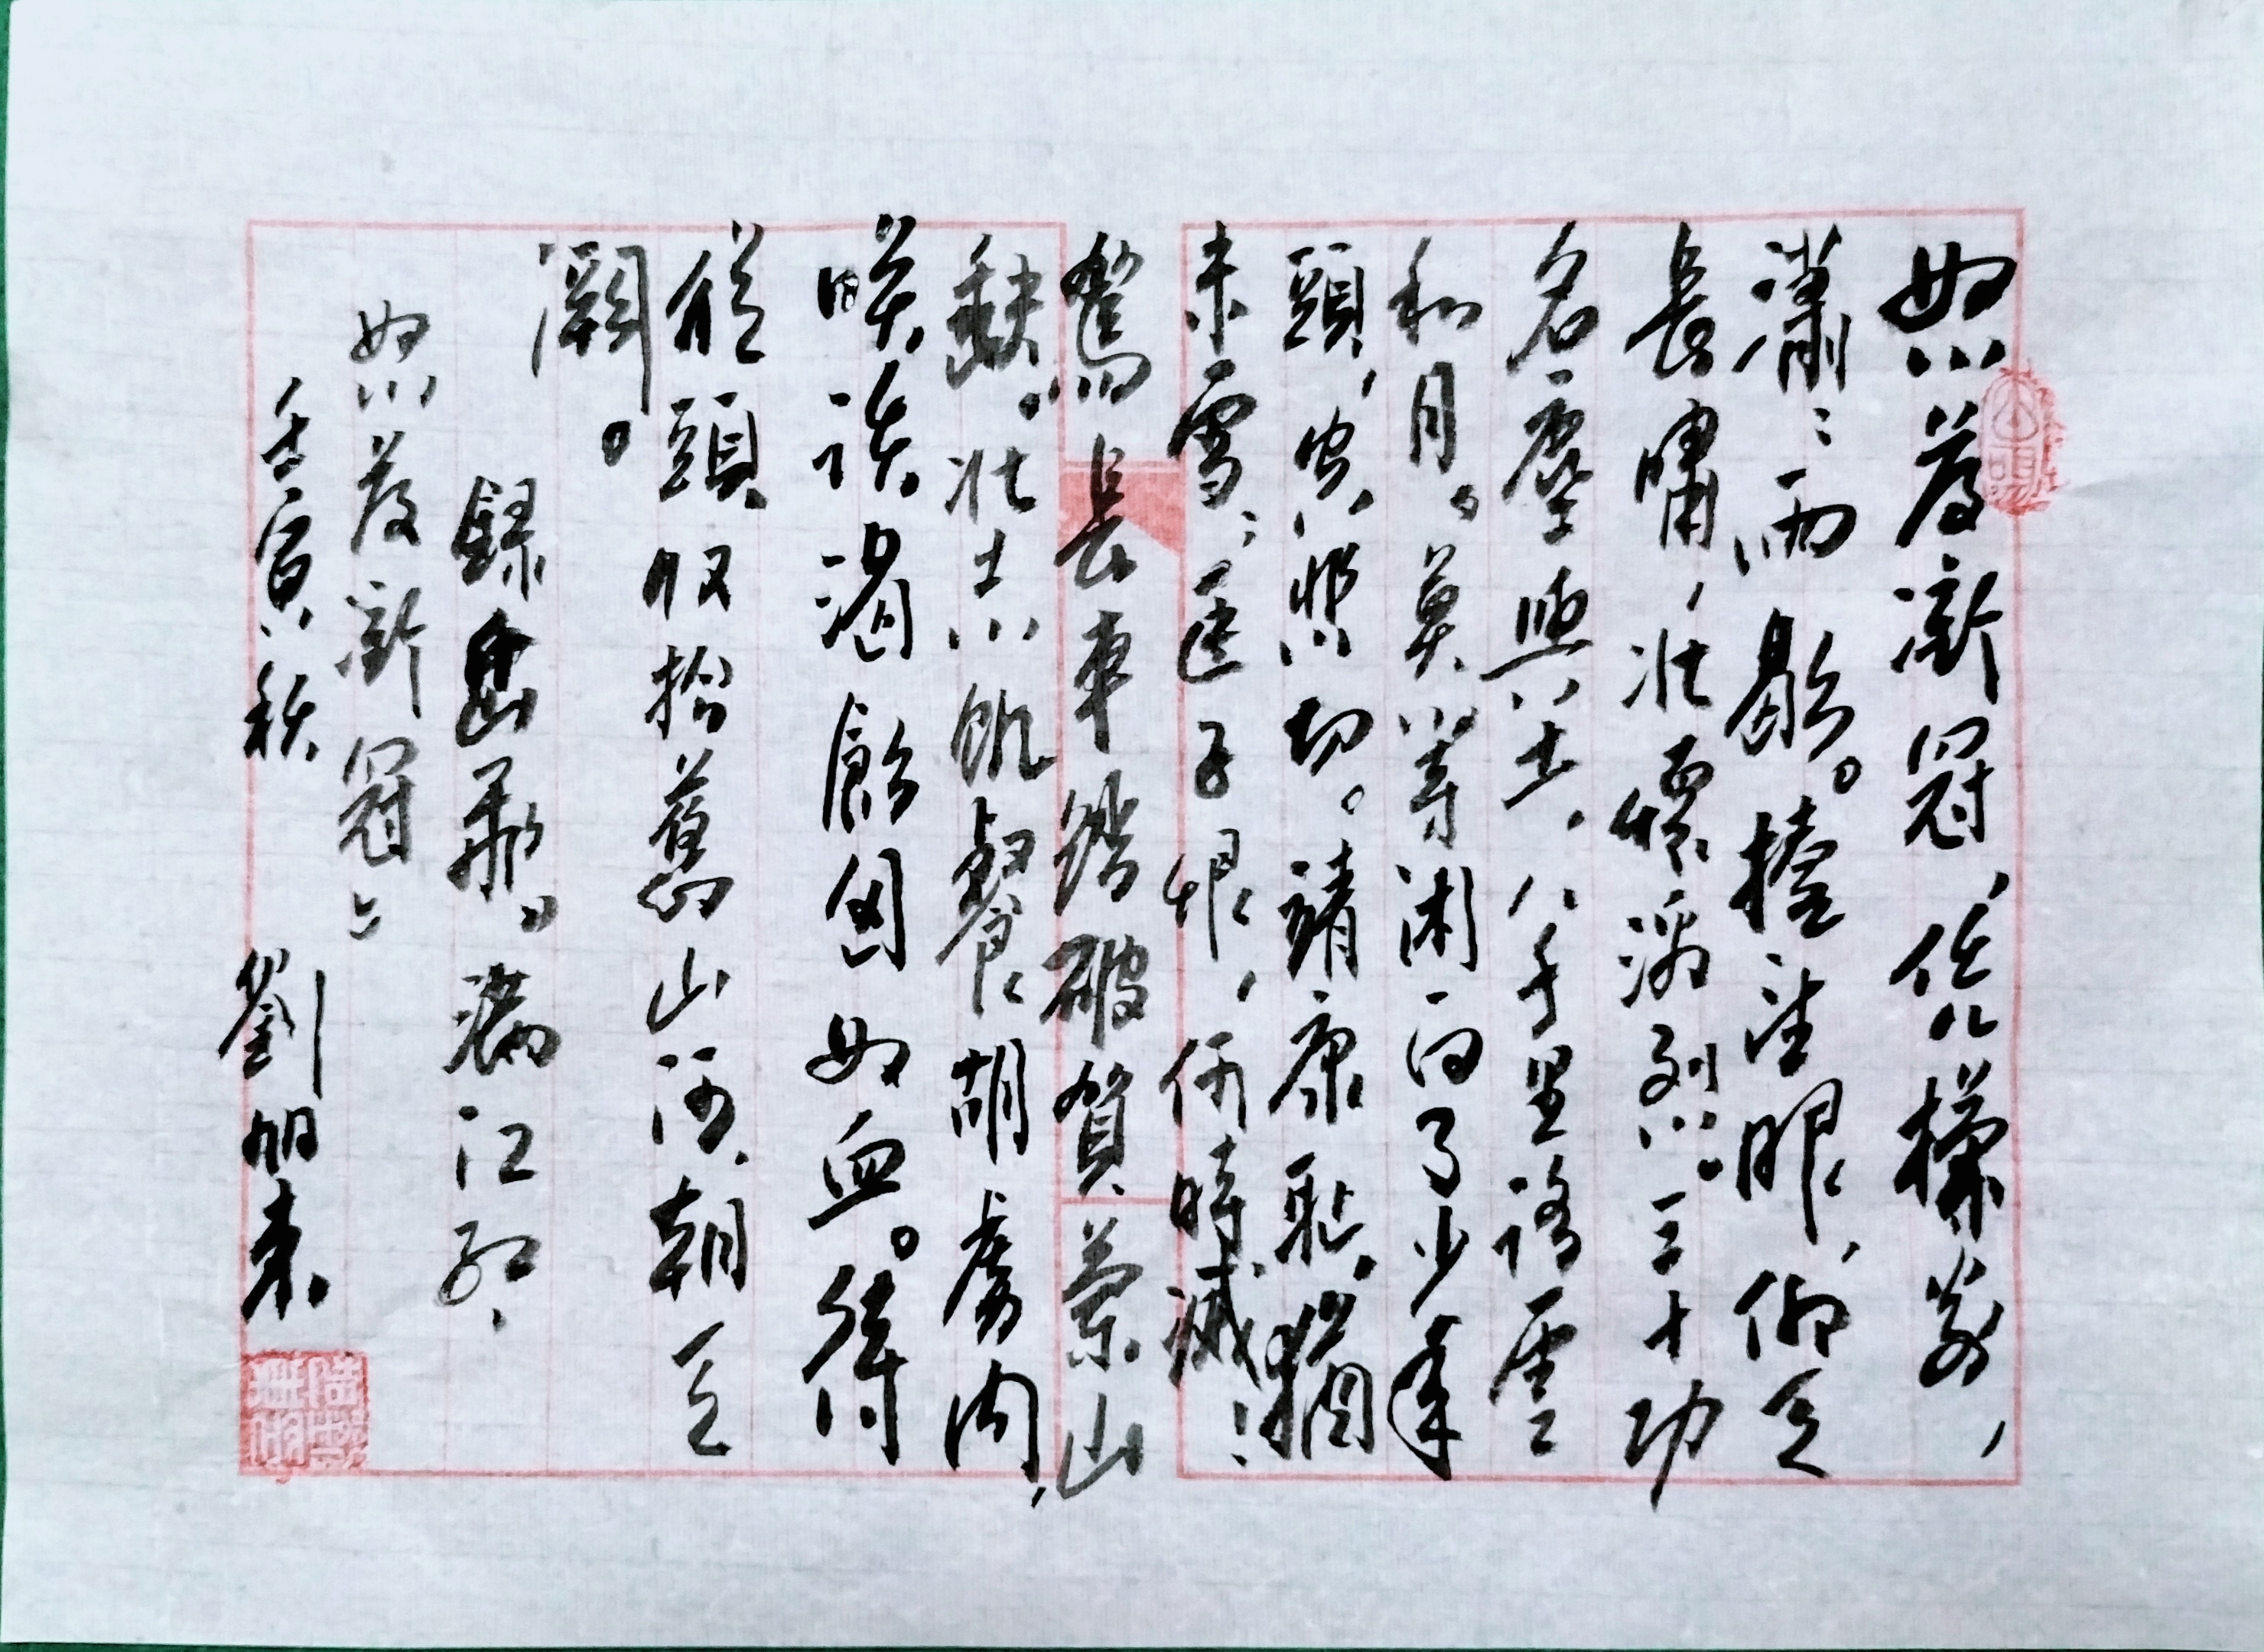 怒髮衝冠、凭欄處，
瀟〻雨歇。擡望眼，仰天
長嘯，壯懷激烈。三十功
名塵與土，八千里路雲
和月。莫等閑白了少年
頭，空悲切。靖康恥、猶
未雪；臣子恨，何時滅！
駕長車踏破賀蘭山
缺。壯志飢餐胡虜肉，
咲談渴飲匈奴血。待
從頭收拾舊山河、朝天
闕。
錄岳飛。滿江紅、
怒髮衝冠〻
壬寅秋 劉旭東